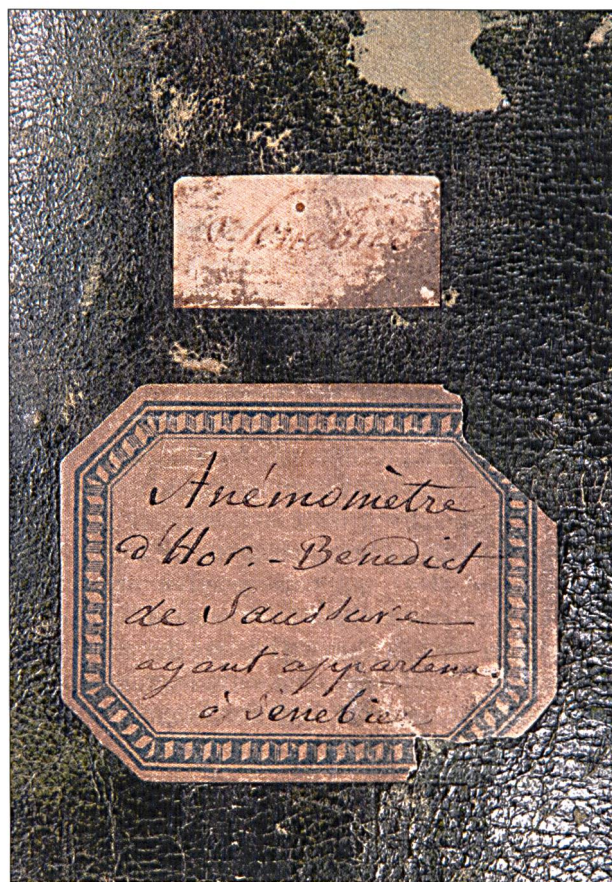 Senebier
Anémomètre
d'Hor. - Benedict
de Saussure
ayant appartenu
à Senebier